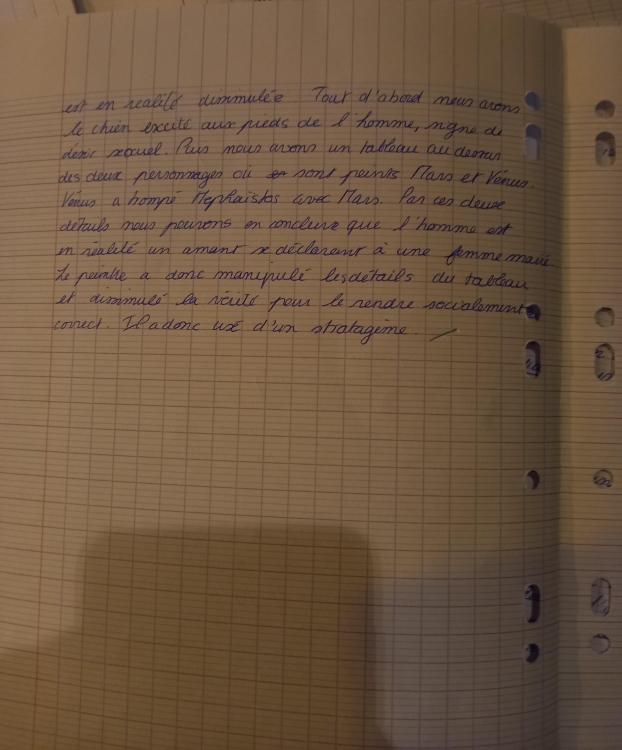 est en realité dissimulée Tout d'abord nous avons
le chien excité aux pieds de l'homme, signe de
désir sexuel. Puis nous avons un tableau au dessus
des deux personnages où sont peints Mars et Vénus.
Vénus a trompé Hephaïstos avec Mars. Par ces deux
détails nous pouvons en conclure que l'homme est
en réalité un amant se déclarant à une femme marié
Le peintre a donc manipulé les détails du tableau
et dissimulé la vérité pour le rendre socialement
correct. Il a donc usé d'un stratagème.